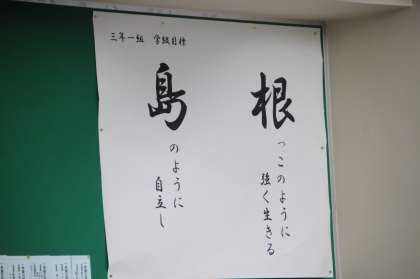 三年一組 学級目標
島のように自立し
根っこのように強く生きる